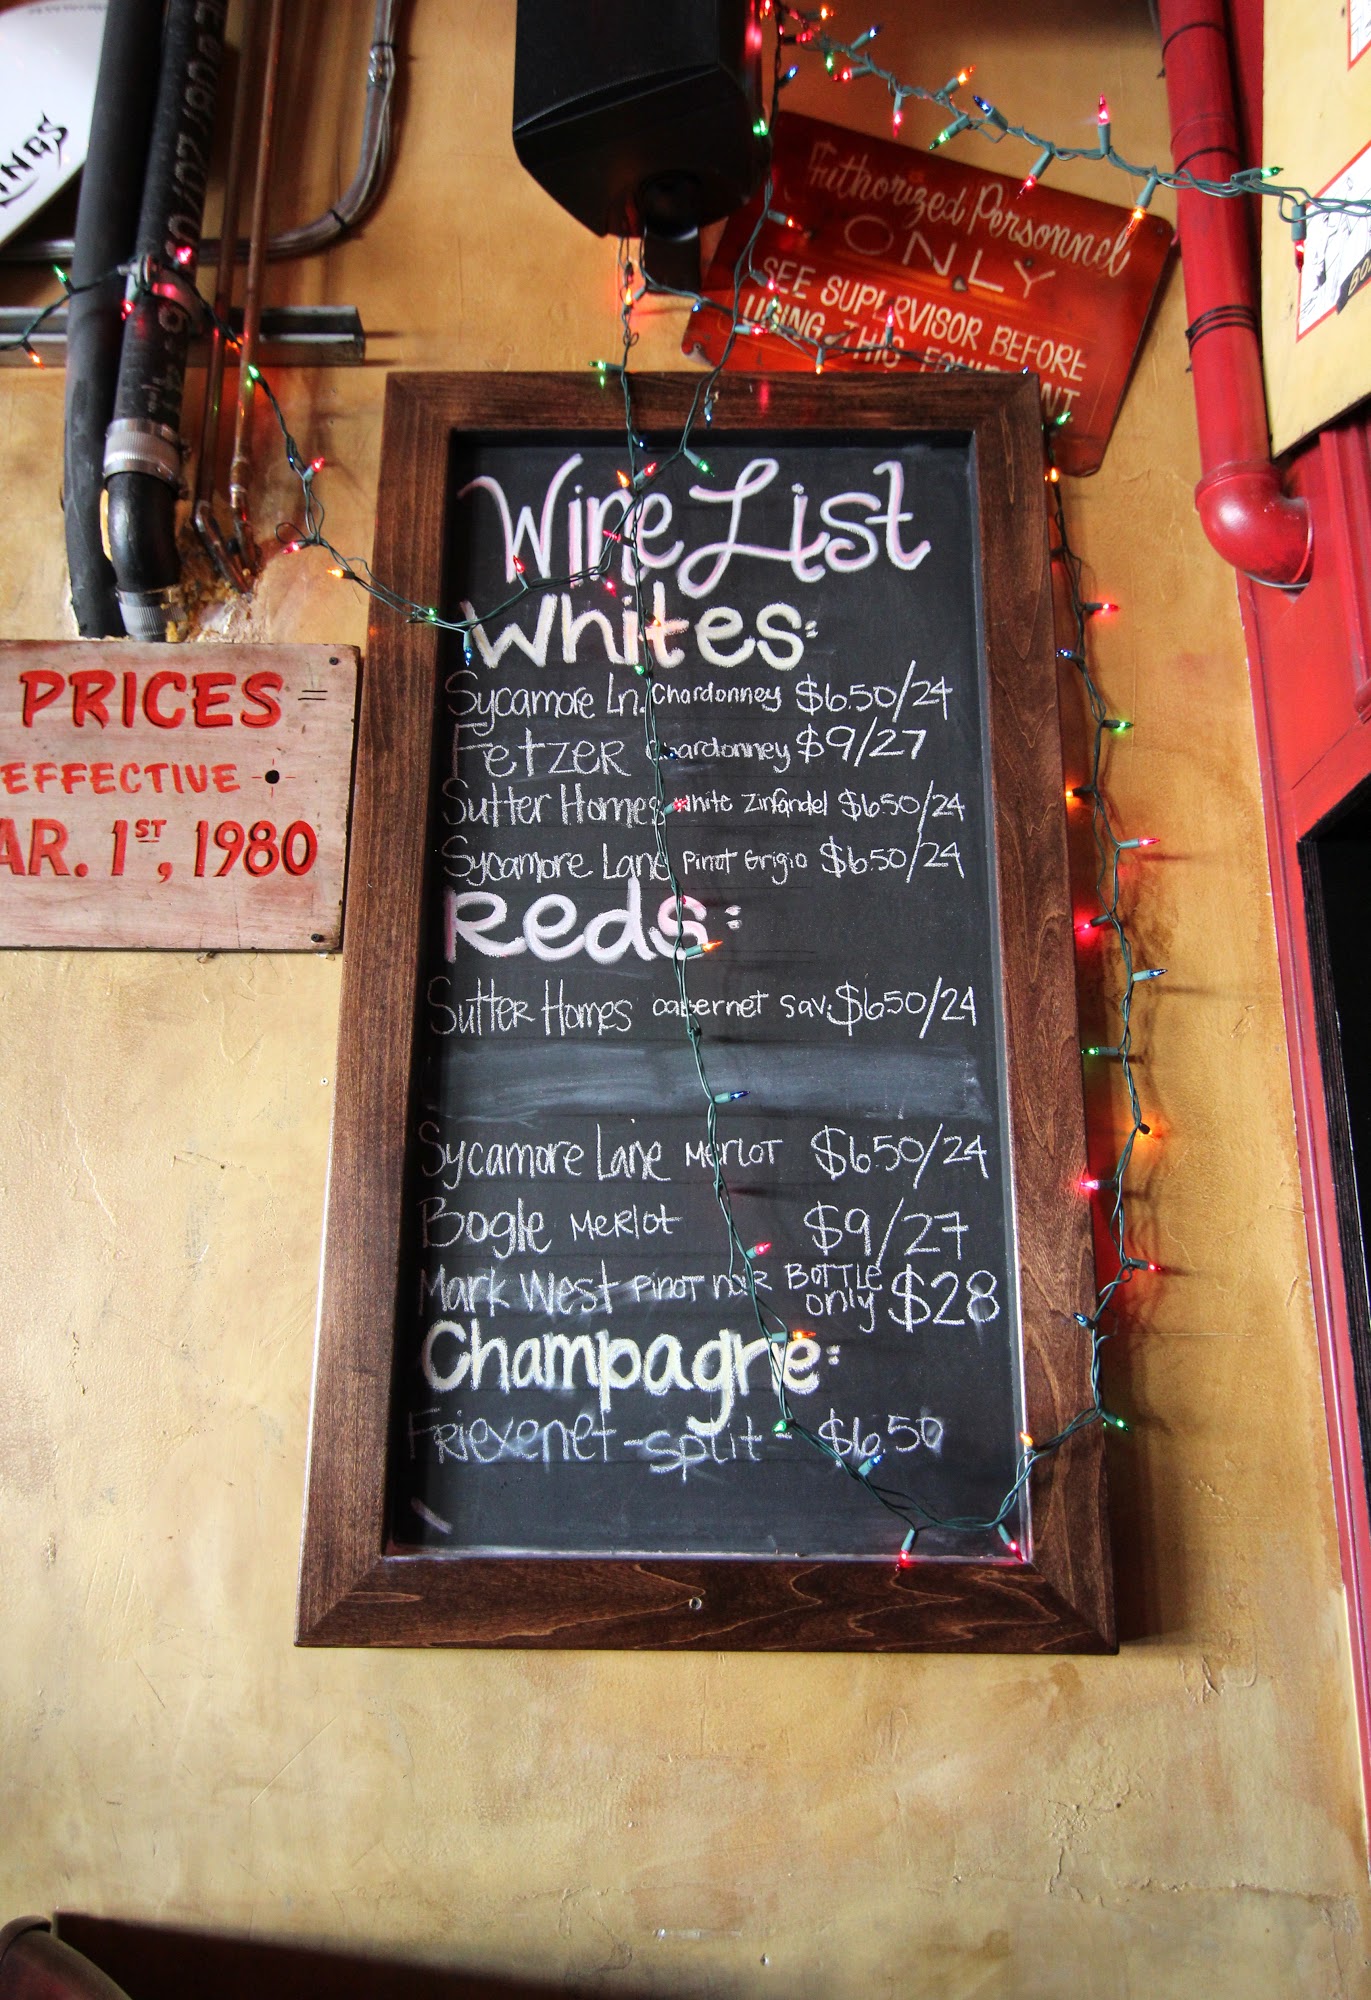 Authorized Personnel
ONLY
SEE SUPERVISOR BEFORE
USING THIS EQUIPMENT
Wine List
Whites:
Sycamore Ln. Chardonney $6.50/24
Fetzer Chardonney $9/27
Sutter Homes White Zinfandel $6.50/24
Sycamore Lane Pinot Grigio $6.50/24
Reds:
Sutter Homes Cabernet Sav. $6.50/24
Sycamore Lane Merlot $6.50/24
Bogle Merlot $9/27
Mark West Pinot Noir Bottle only $28
Champagne:
Friexenet -split- $6.50
PRICES =
EFFECTIVE
AR. 1ST, 1980